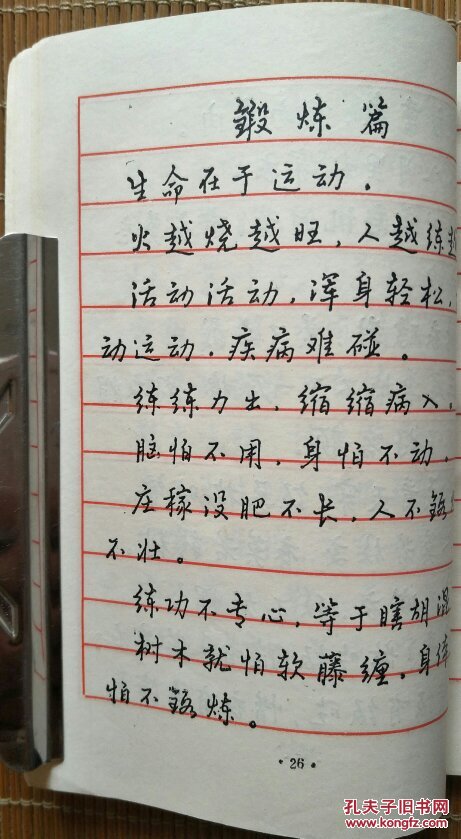 鍛炼篇
生命在于运动。
火越烧越旺，人越练越
活动活动，浑身轻松，
动运动，疾病难碰。
练练力出，缩缩病入，
脑怕不用，身怕不动，
庄稼没肥不长，人不鍛
不壮。
练功不专心，等于瞎胡混
树木就怕软藤缠，身体
怕不鍛炼。
·26·
孔夫子旧书网
www.kongfz.com